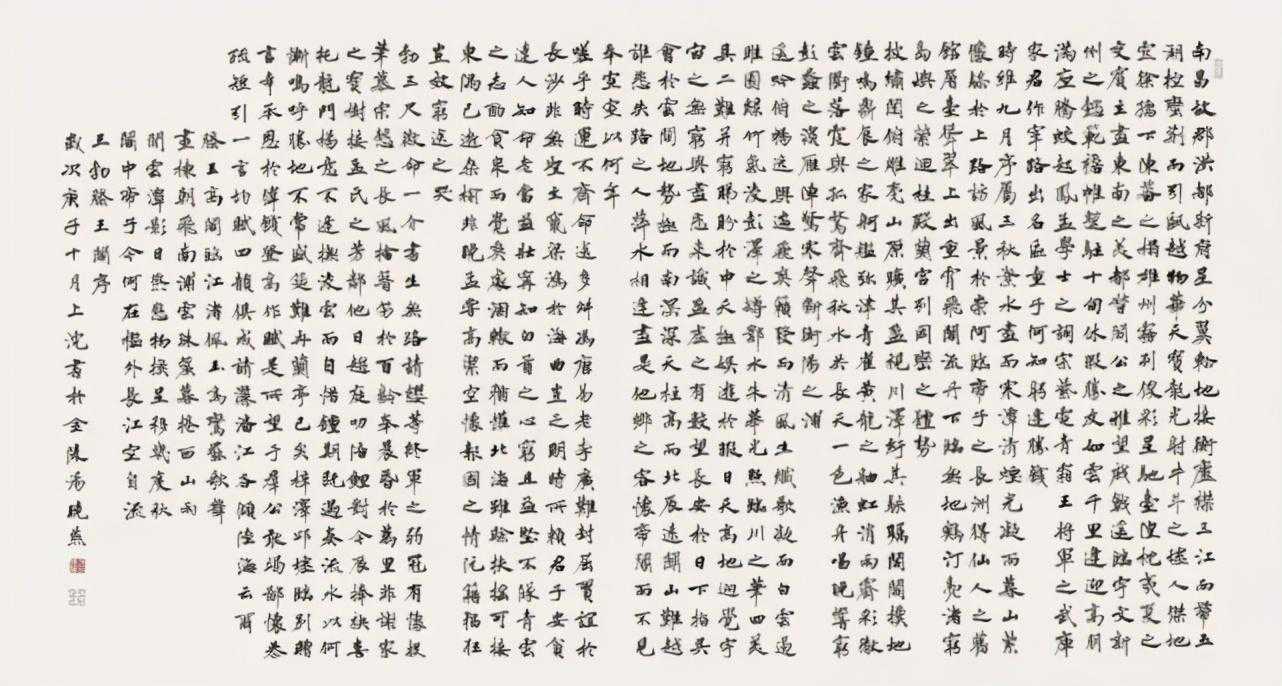 南昌故郡洪都新府星分翼軫地接衡廬襟三江而帶五
湖控蠻荊而引甌越物華天寶龍光射牛斗之墟人傑地
靈徐孺下陳蕃之榻雄州霧列俊彩星馳臺隍枕夷夏之
交賓主盡東南之美都督閻公之雅望棨戟遙臨宇文新
州之懿範襜帷暫駐十旬休暇勝友如雲千里逢迎高朋
滿座騰蛟起鳳孟學士之詞宗紫電青霜王將軍之武庫
家君作宰路出名區童子何知躬逢勝餞
時維九月序屬三秋潦水盡而寒潭清煙光凝而暮山紫
儼驂於上路訪風景於崇阿臨帝子之長洲得仙人之舊
館層臺聳翠上出重霄飛閣流丹下臨無地鶴汀鳧渚窮
島嶼之縈迴桂殿蘭宮列岡巒之體勢
披繡闥俯雕甍山原曠其盈視川澤紆其駭矚閭閻撲地
鐘鳴鼎食之家舸艦彌津青雀黃龍之舳虹消雨霽彩徹
雲衢落霞與孤鶩齊飛秋水共長天一色漁舟唱晚響窮
彭蠡之濱雁陣驚寒聲斷衡陽之浦
遙吟俯暢逸興遄飛爽籟發而清風生纖歌凝而白雲遏
睢園綠竹氣凌彭澤之樽鄴水朱華光照臨川之筆四美
具二難并窮睇眄於中天極娛遊於暇日天高地迥覺宇
宙之無窮興盡悲來識盈虛之有數望長安於日下指吳
會於雲間地勢極而南溟深天柱高而北辰遠關山難越
誰悲失路之人萍水相逢盡是他鄉之客懷帝閽而不見
奉宣室以何年
嗟乎時運不齊命途多舛馮唐易老李廣難封屈賈誼於
長沙非無聖主竄梁鴻於海曲豈乏明時所賴君子安貧
達人知命老當益壯寧知白首之心窮且益堅不墜青雲
之志酌貪泉而覺爽處涸轍而猶懽北海雖賒扶搖可接
東隅已逝桑榆非晚孟嘗高潔空懷報國之情阮籍猖狂
豈效窮途之哭
勃三尺微命一介書生無路請纓等終軍之弱冠有懷投
筆慕宗愨之長風捨簪笏於百齡奉晨昏於萬里非謝家
之寶樹接孟氏之芳鄰他日趨庭叨陪鯉對今晨捧袂喜
托龍門楊意不逢撫凌雲而自惜鐘期既遇奏流水以何
慚嗚呼勝地不常盛筵難再蘭亭已矣梓澤邱墟臨別贈
言幸承恩於偉餞登高作賦是所望于群公敢竭鄙懷恭
疏短引一言均賦四韻俱成請灑潘江各傾陸海云爾
滕王高閣臨江渚佩玉鳴鸞罷歌舞
畫棟朝飛南浦雲珠簾暮捲西山雨
閒雲潭影日悠悠物換星移幾度秋
閣中帝子今何在檻外長江空自流
王勃滕王閣序
歲次庚子十月上浣書於金陵曉燕